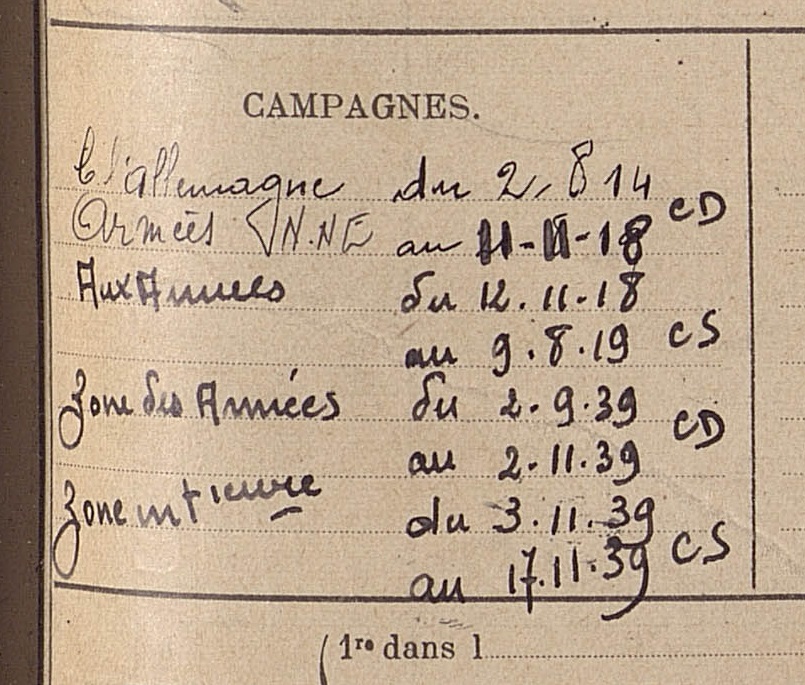 CAMPAGNES.
C. l'allemagne du 2. 8 14
Armées N.NE au 11-11-18 CD
Aux Armées du 12.11.18
au 9.8.19 CS
Zone des Armées du 2.9.39
au 2.11.39 CD
Zone intieure du 3.11.39
au 17.11.39 CS
1re dans l